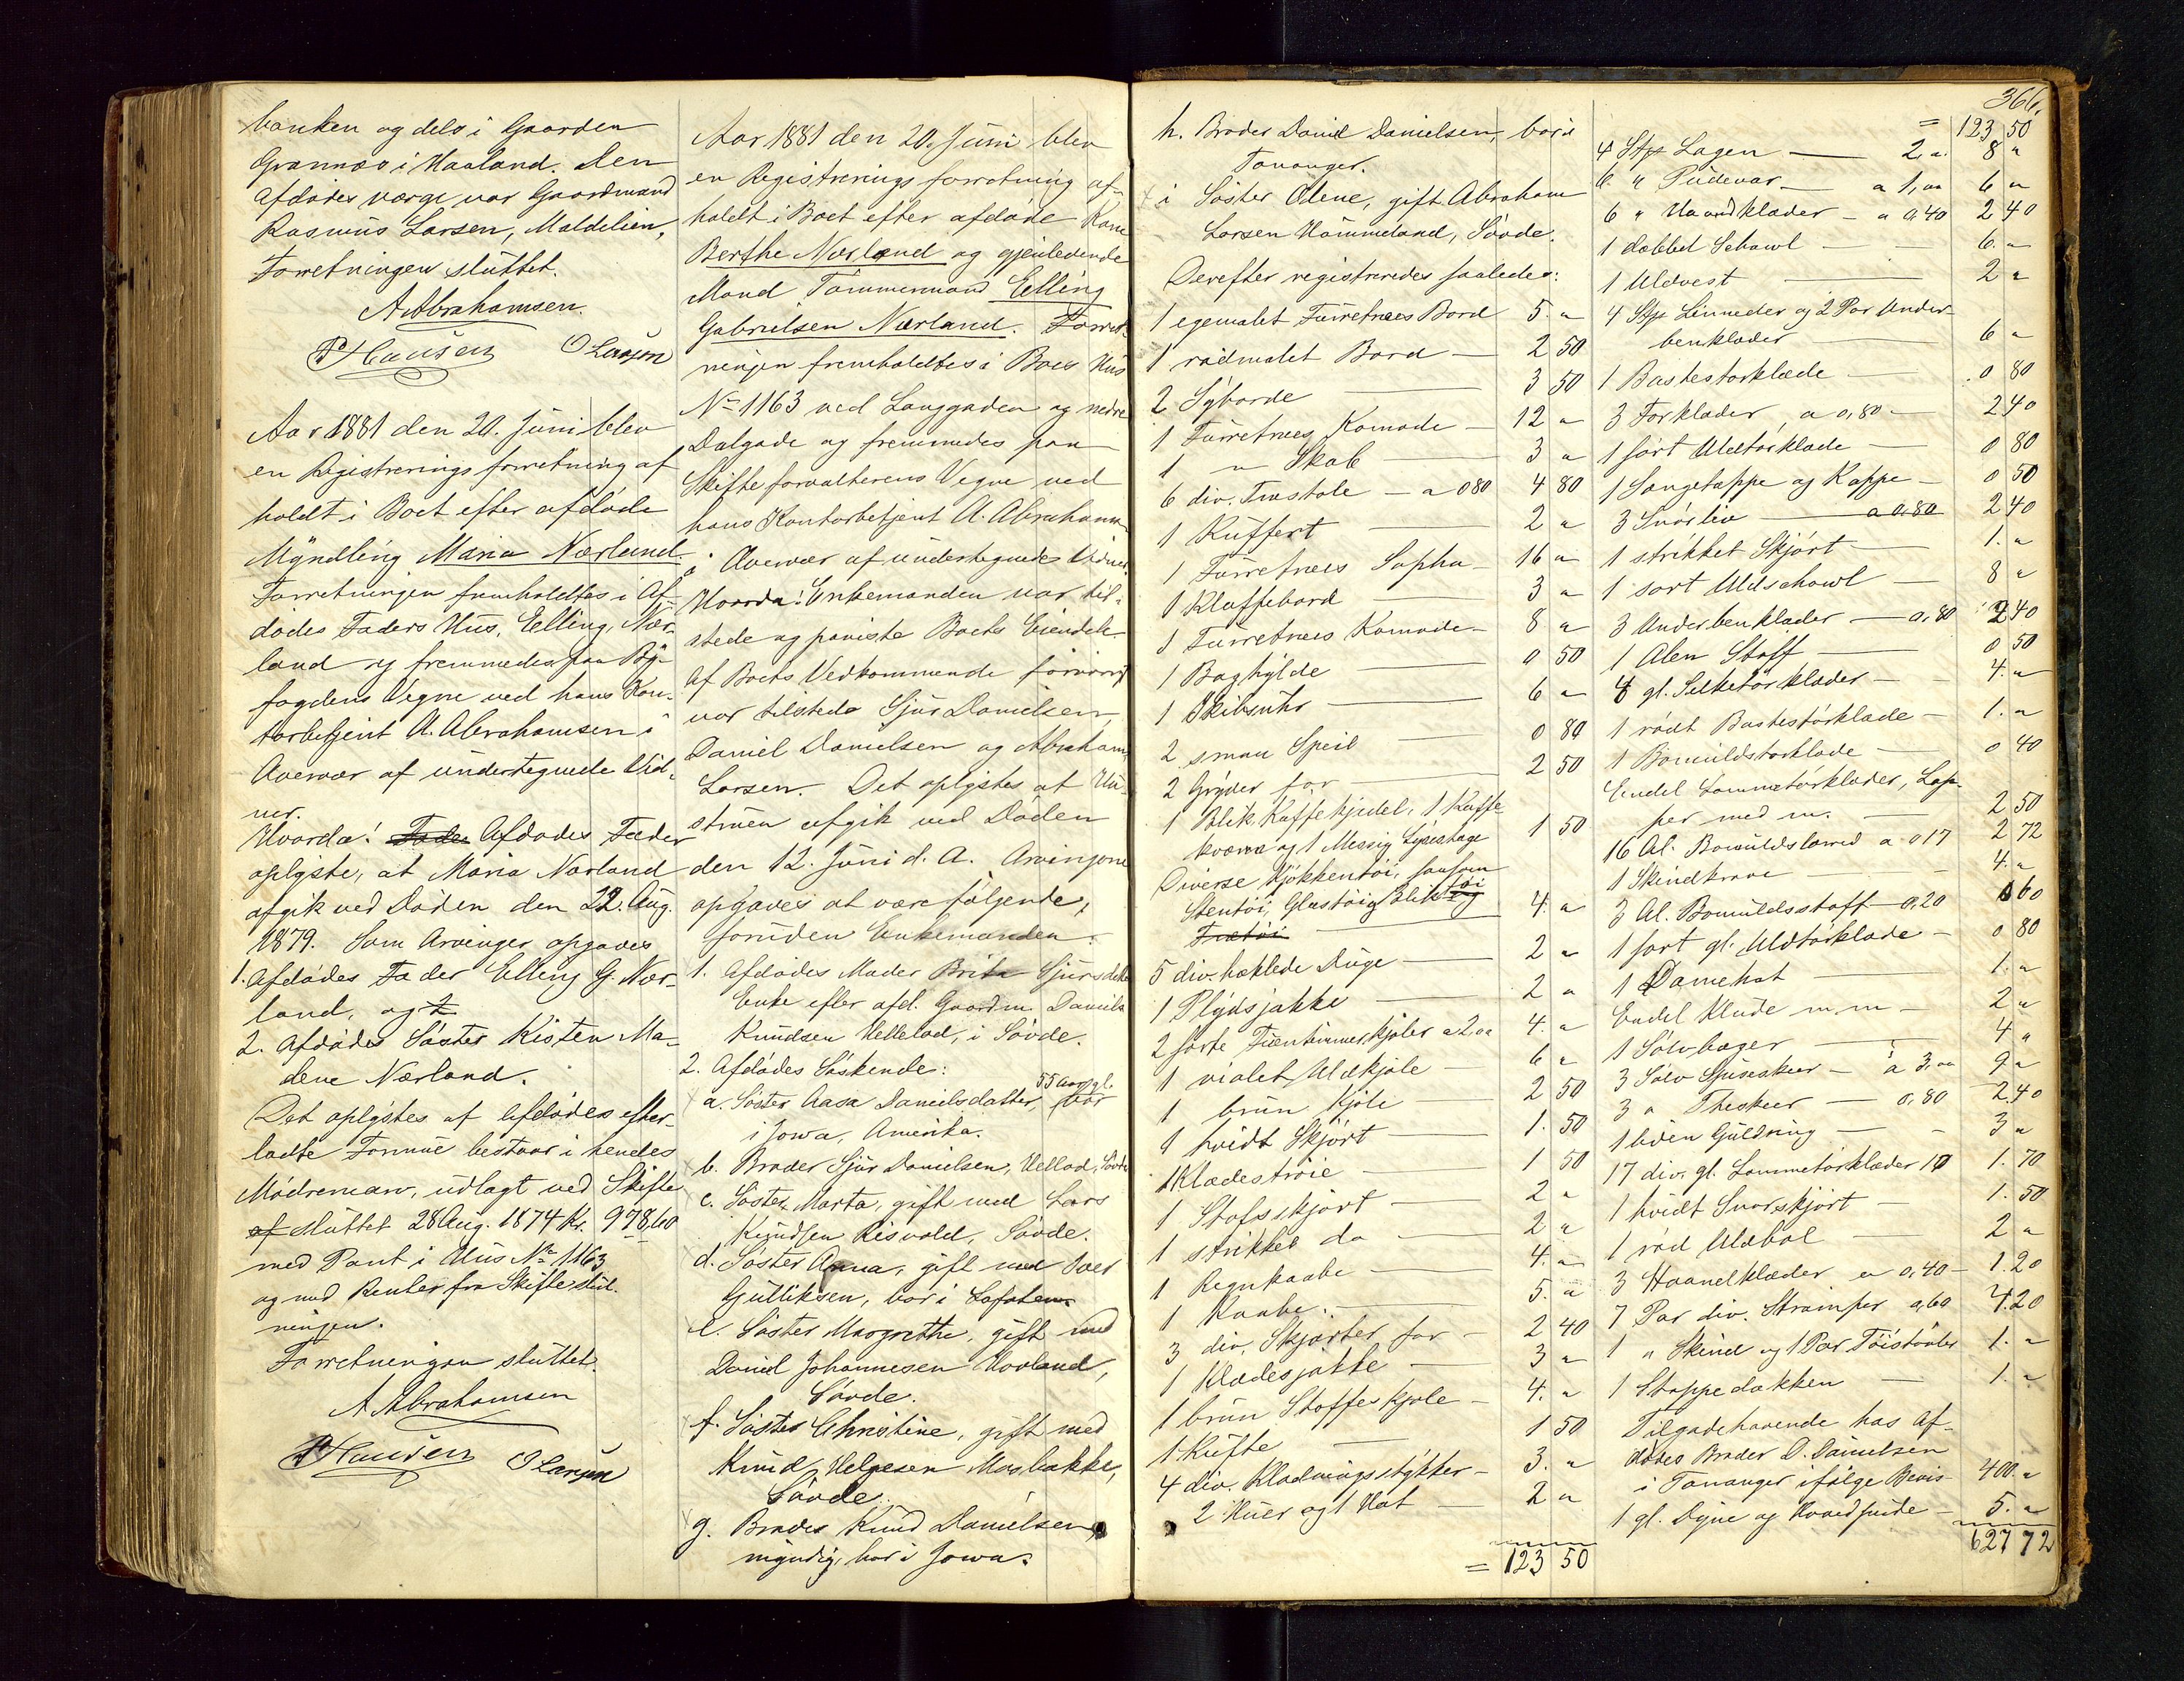 banken og dels i Gaarden
Grannæs i Haaland. Den
afdødes værge var Gaardmand
Rasmus Larsen, Maldelien,
Forretningen sluttet.
A Abrahamsen.
P Hansen O Larsen
Aar 1881 den 20. Juni blev
en Registreringsforretning af
holdt i Boet efter afdøde
Myndling Maria Nærland.
Forretningen fremholdtes i Af-
dødes Faders Hus, Elling, Nær-
land og fremmedes paa By-
fogdens Vegne ved hans Kon-
torbetjent A. Abrahamsen i
Overvær af undertegnede Vid-
ner.
Hvorda! Fader Afdødes Fader
oplyste, at Maria Nærland
afgik ved Døden den 22. Aug.
1879. Som Arvinger opgaves
1. Afdødes Fader Elling G. Nær-
land, og 2
2. Afdødes Søster Kisten Ma-
dene Nærland.
Det oplystes at Afdødes efter-
ladte Formue bestaar i hendes
Mødrenearv, udlagt ved Skifte
af sluttet 28 Aug. 1874 Kr. 978,60
med Pant i Hus No 1163
og med Renter fra Skifteslut-
ningen.
Forretningen sluttet.
A Abrahamsen
P Hansen O Larsen
Aar 1881 den 20. Juni blev
en Registreringsforretning af-
holdt i Boet efter afdøde Kone
Berthe Nærland og gjenlevende
Mand Tømmermand Elling
Gabrielsen Nærland. Forret-
ningen fremholdtes i Boets Hus
No 1163 ved Langgaden og nedre
Dalgade og fremmedes paa
Skifteforvalterens Vegne ved
hans Kontorbetjent A. Abrahams
i Overvær af undertegnede Vidner.
Hvorda! Enkemanden var til-
stede og paaviste Boets Eiendele
Af Boets Vedkommende forøvrigt
var tilstede Sjur Danielsen,
Daniel Danielsen og Abraham
Larsen. Det oplystes at Hu-
struen afgik ved Døden
den 12. Juni d. A. Arvingerne
opgaves at være følgende,
foruden Enkemanden:
1. Afdødes Moder Brita Sjursdatter
Enke efter afd. Gaardm. Daniels
Knudsen Hellelad, i Søvde.
2. Afdødes Søskende:
a. Søster Aasa Danielsdatter, 55 Aar gl. bor
i Jowa, Amerika.
b. Broder Sjur Danielsen, Hellad, Søvde
c. Søster Marta, gift med Lars
Knudsen Risvold, Søvde.
d. Søster Anna, gift med Iver
Gulliksen, bor i Lofoten.
e. Søster Margrethe, gift med
Daniel Johannesen Hovland,
Søvde.
f. Søster Christine, gift med
Knud Helgesen Mosbakke,
Søvde.
g. Broder Knud Danielsen,
myndig, bor i Jowa.
h. Broder Daniel Danielsen, bor i
Tananger.
i Søster Olene, gift Abraham
Larsen Hammeland, Søvde.
Derefter registreredes saaledes:
1 egemalet Furretræes Bord 5. "
1 rødmalet Bord — 2 50
2 Syborde — 3 50
1 Furretræes Komode — 12 "
1 " Skab — 3 "
6 div. Træstole — a 0 80 4 80
1 Kuffert — 2 "
1 Furretræes Sopha — 16 "
1 Klaffebord — 3 "
1 Furretræes Komode — 8 "
1 Boghylde — 0 50
1 Skibsuhr — 6 "
2 smaa Speil — 0 80
2 Gryder for — 2 50
1 Blik Kaffekjedel, 1 Kaffe-
kværn og 1 Messing Lysestage 1 50
Diverse Kjøkkentøi, saasom
Stentøi, Glastøi og Bliktøi og 4. "
Trætøi
5 div. hæklede Duge — 2 "
1 Plydsjakke — 2 "
2 sorte Fruentimmerkjoler a 2,00 4. "
1 violet Uldkjole — 6 "
1 brun Kjole — 2 50
1 hvidt Skjørt — 1. 50
1 Klædestrøie — 1 50
1 Stofsskjørt — 2 "
1 strikket do — 2 "
1 Regnkaabe — 4. "
1 Kaabe. — 5. "
3 div. Skjørter for — 2 40
1 Klædesjakke — 3 "
1 brun Stoffeskjole — 4. "
1 Kufte — 1 50
4 div. Klædningsstykker — 3. "
2 Huer og 1 Hat — 2 "
= 123 50
366.
= 123 50
4 Stp Lagen — 2 ". 8 "
6 " Pudevar — a 1,00 6 "
6 " Haandklæder — a 0,40 2 40
1 dobbel Schawl — 6. "
1 Uldvest — 2 "
4 Stp Linneder og 2 Par Under-
benklæder — 6 "
1 Bastestørklæde — 0 80
3 Forklæder a 0,80 — 2 40
1 sort Uldtørklæde — 0 80
1 Sengetæppe og Kappe — 0 50
3 Snørliv — a 0,80 2 40
1 strikket Skjørt — 1. "
1 sort Uldschawl — 8 "
3 Underbenklæder — 0,80 2 40
1 Alen Stoff — 0 50
4 gl. Silketørklæder — 4. "
1 rødt Bastestørklæde — 1. "
1 Bomuldstørklæde — 0 40
Endel Lommetørklæder, Lap-
per med m. — 2 50
16 Al. Bomuldslærred a 0 17 2 72
1 Skindkrave — 4. "
3 Al. Bomuldsstoff — 0,20 60
1 sort gl. Uldtørklæde — 0 80
1 Damehat — 1. "
Endel Klude m m — 2 "
1 Sølvbæger — 4 "
3 Sølv Spiseskeer — à 3,00 9 "
3 " Theskeer — 0,80 2.40
1 liden Guldring — 3 "
17 div. gl. Lommetørklæder 10 1. 70
1 hvidt Snorskjørt — 1. 50
1 rød Uldbol — 2 "
3 Haandklæder a 0,40 — 1.20
7 Par div. Strømper 0,60 4.20
1 " Skind og 1 Par Tøistøvler 1. "
1 Stoppedækken — 1. "
Tilgodehavende hos Af-
dødes Broder D. Danielsen
i Tananger ifølge Bevis — 400. "
1 gl. Dyne og Hovedpude — 5. "
627 72